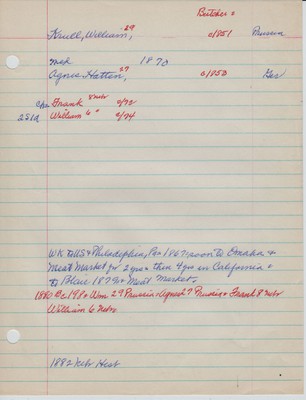 Butcher
Krull, William, 29 c/1851 Prussia
md 1870
Agnes Hatton, 27 c/1853 Ger
Frank 8 Nebr c/72
251a William 6 " c/74
WK to US & Philadelphia, Pa 1867 soon to Omaha &
Meat Market for 2 yrs & then 4 yrs in California &
to Blair 1879 & Meat Market.
1880 Bc 198 Wm 29 Prussia Agnes 27 Prussia & Frank 8 Nebr
William 6 Nebr
1882 Nebr Hist